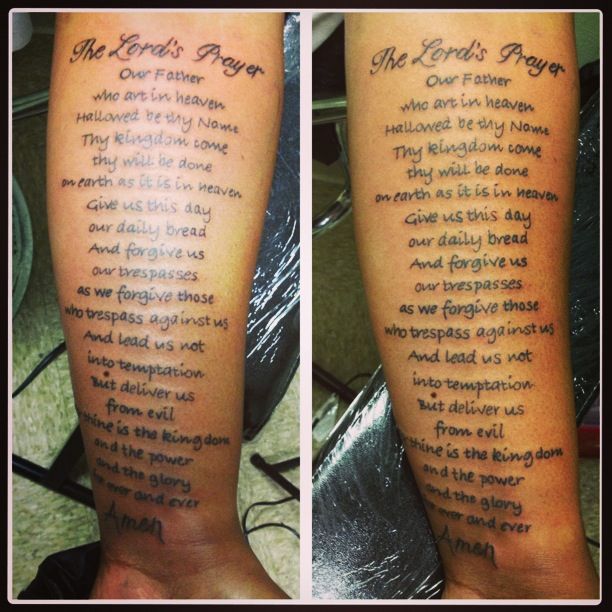 The Lord's Prayer
Our Father
who art in heaven
Hallowed be thy Name
Thy kingdom come
thy will be done
on earth as it is in heaven
Give us this day
our daily bread
And forgive us
our trespasses
as we forgive those
who trespass against us
And lead us not
into temptation
But deliver us
from evil
thine is the kingdom
and the power
and the glory
ever and ever
Amen
The Lord's Prayer
Our Father
who art in heaven
Hallowed be thy Name
Thy kingdom come
thy will be done
on earth as it is in heaven
Give us this day
our daily bread
And forgive us
our trespasses
as we forgive those
who trespass against us
And lead us not
into temptation
But deliver us
from evil
thine is the kingdom
and the power
and the glory
ever and ever
Amen